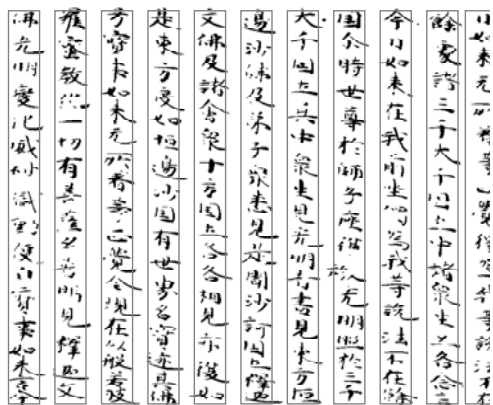 日如来无所著等正覺獨為我等說法不在
餘處諸三千大千国土中諸衆生各各念言
今日如来在我前坐獨為我等說法不在餘
国尒時世尊於師子座從放光明照於三千
大千国土其中衆生見光明者悉見東方恒
邊沙佛及弟子衆悉見是間沙訶国土釋迦
文佛及諸會衆十方国土各各相見亦復如
是東方度如恒邊沙国有世界名寶迹其佛
号寶事如来无所著等正覺今現在以般若波
羅蜜教化一切有菩薩名普明見釋迦文
佛光明變化威神感動便白寶事如来